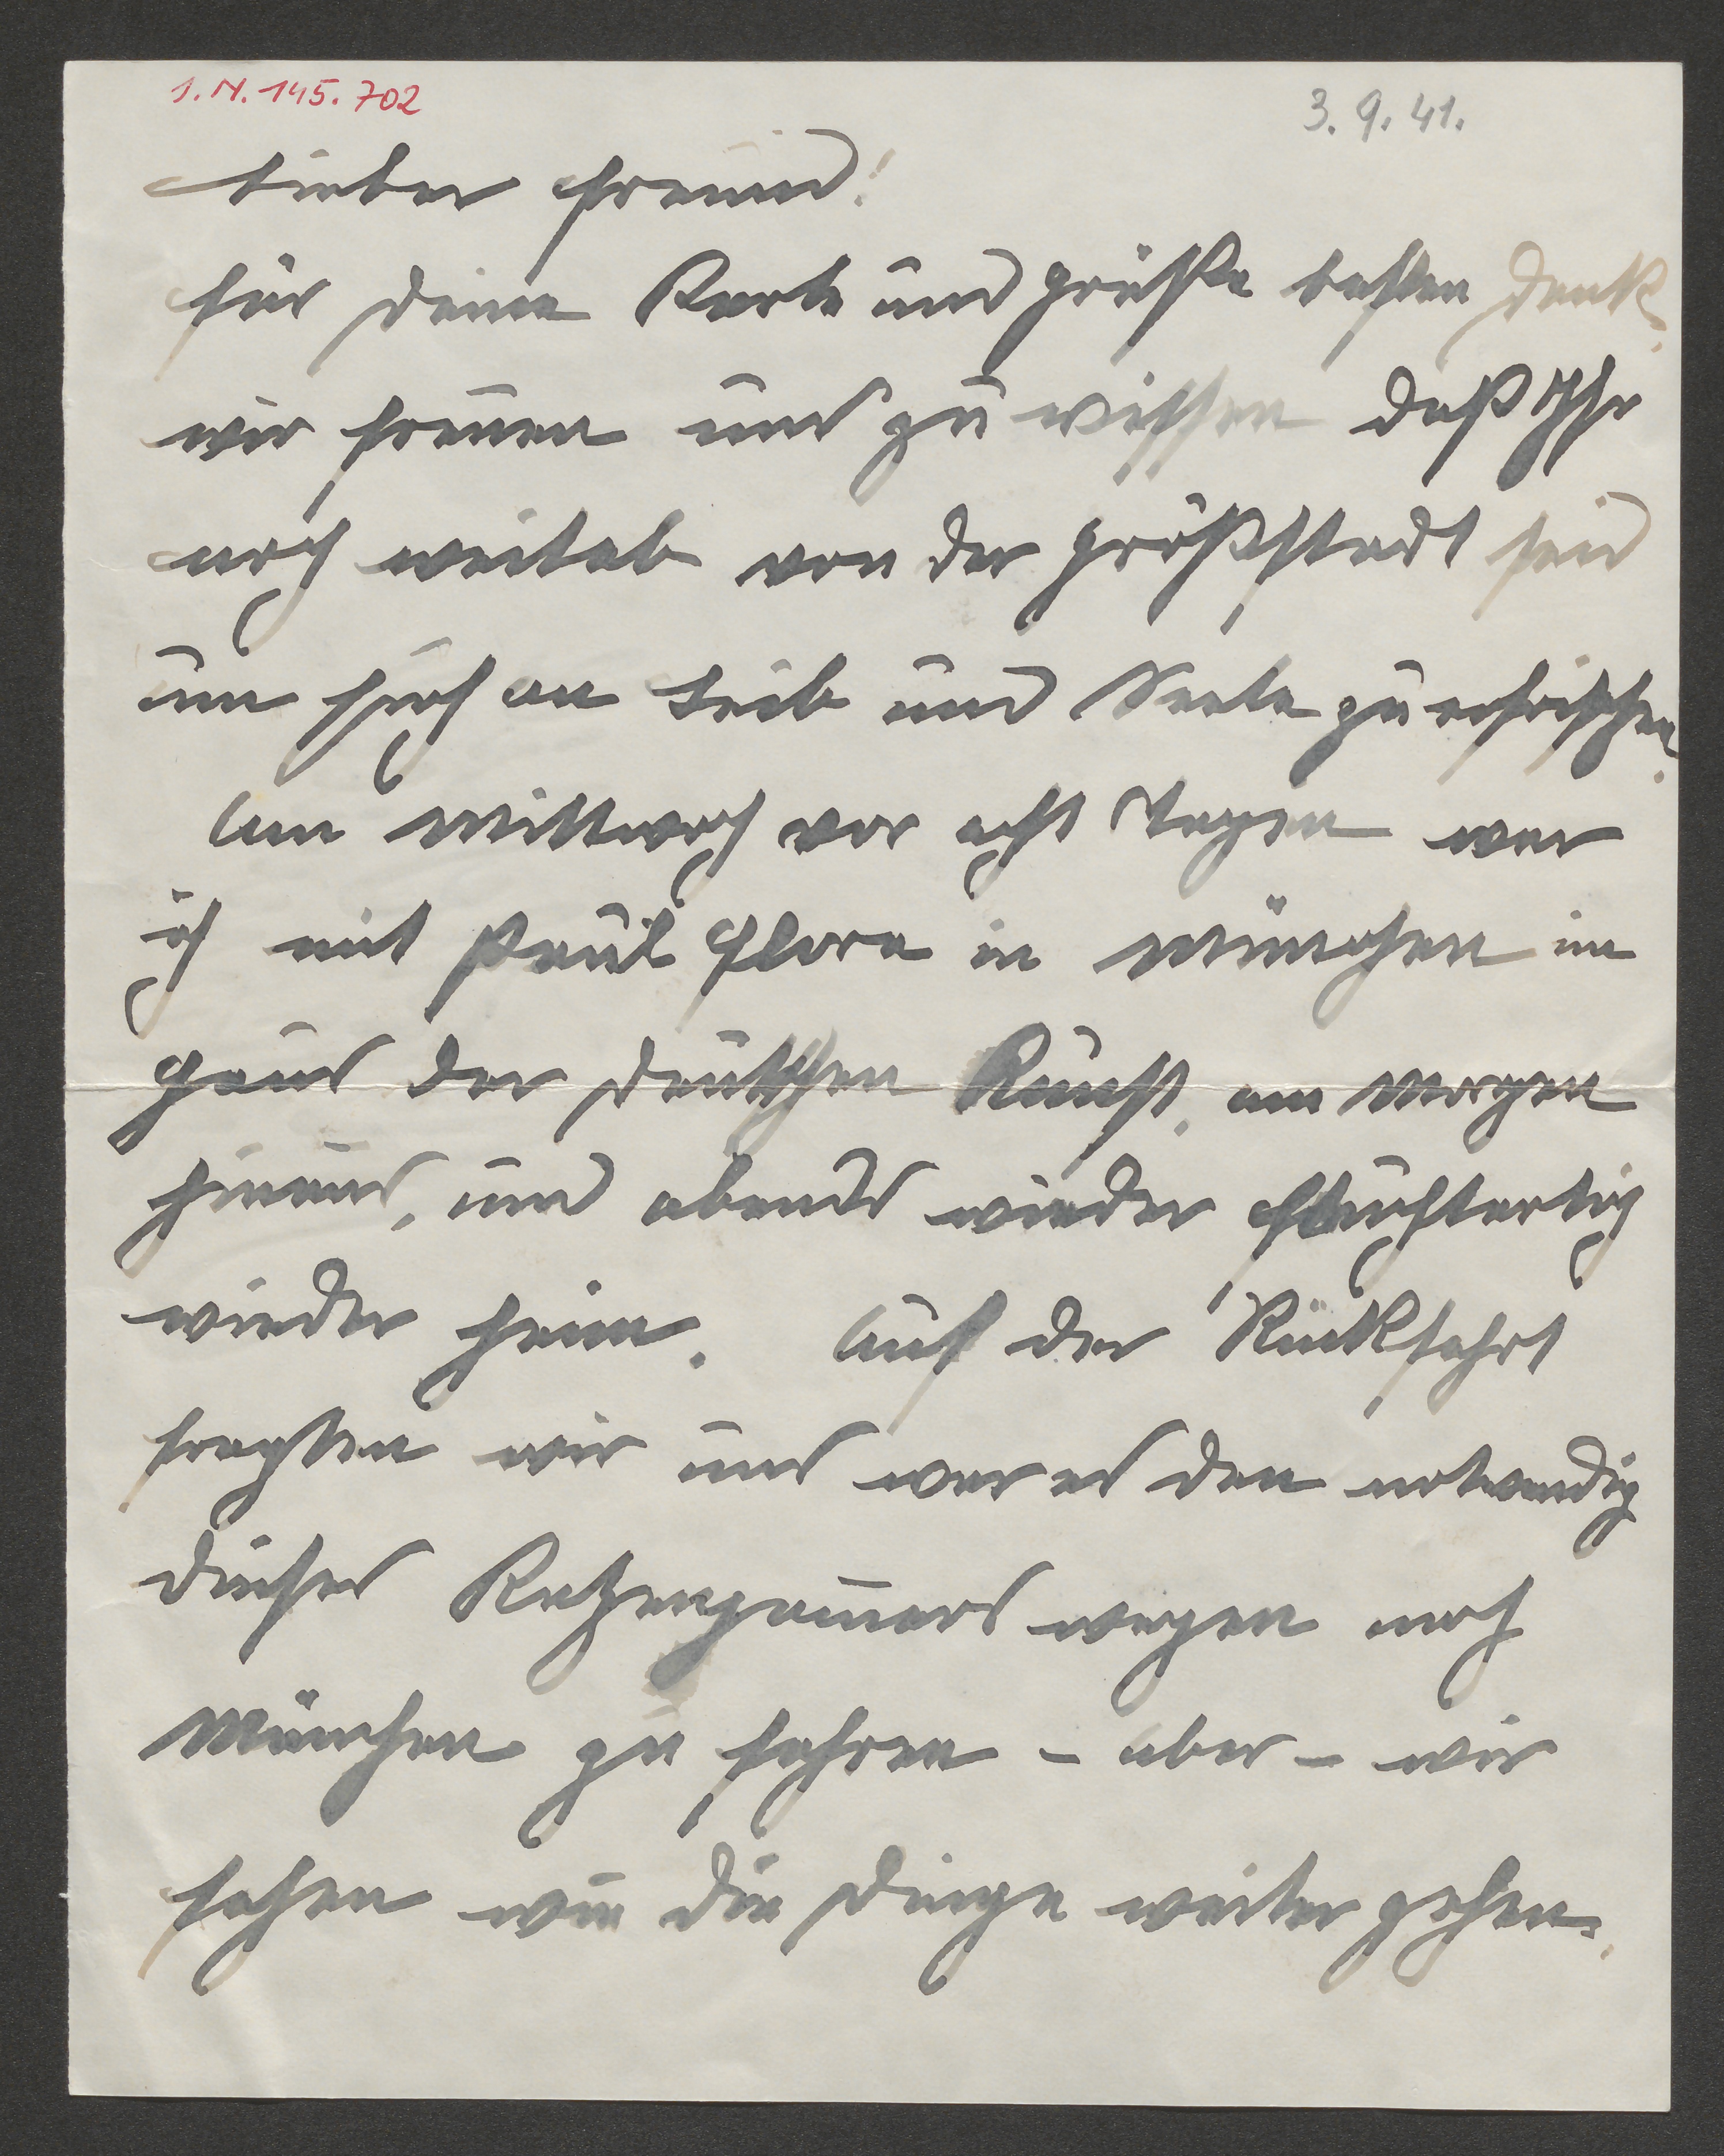 I.N. 145.702
3. 9. 41.
Lieber Freund!
für Deine Karte und Grüße besten Dank.
wir freuen uns zu wissen daß Ihr
noch weitab von der Großstadt seid
um sich an Leib und Seele zu erfrischen.
Am Mittwoch vor acht Tagen war
ich mit Paul Flora in München im
Haus der Deutschen Kunst. am Morgen
hinaus, und abends wieder fluchtartig
wieder heim. Auf der Rückfahrt
fragten wir uns war es den notwendig
dieses Katzenjamers wegen nach
München zu fahren – aber – wir
sehen wie die Dinge weiter gehen.